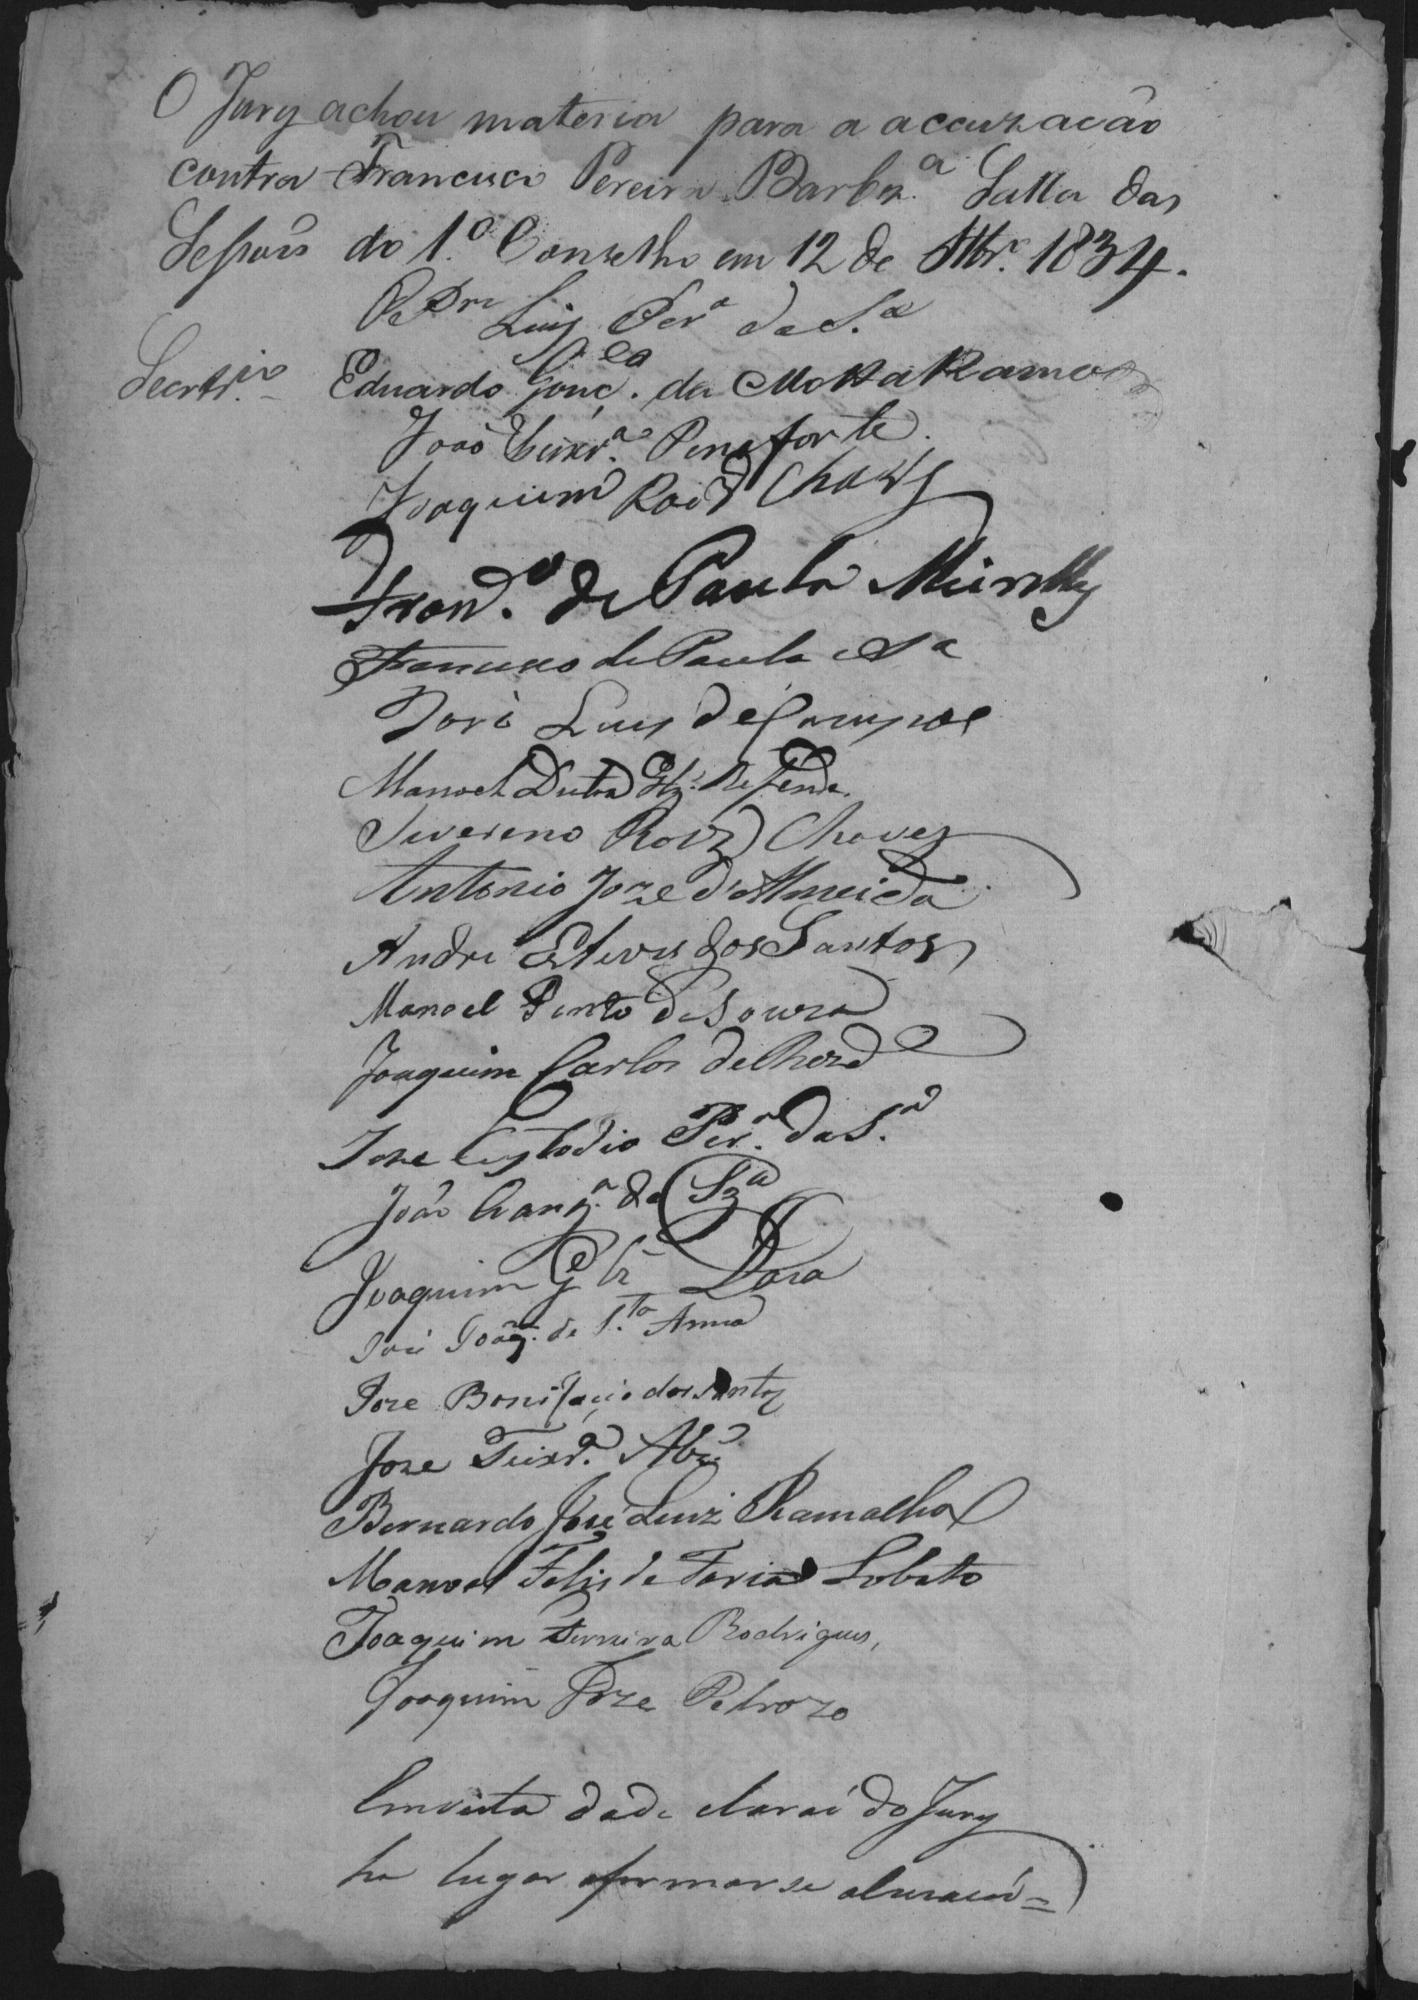 O Jury achou materia para a accuzacão
contra Francisco Pereira Barbz.ª Salla das
Sessois do 1.º Conselho em 12 de 1834.
Luis Per.ª da S.ª
Secret.rio Eduardo Gonç. da Motta Ramos
João Teixr.ª Penaforte.
Joaquim Roiz Chaves
Fran.co de Paula Meirelles
Francisco de Paula e S.ª
José Luis de Campos
Manoel Dutra Rezende.
Severeno Roiz Chaves
Antonio Joze d'Almeida
Andre Esteves dos Santos
Manoel Pinto de Souza
Joaquim Carlos de
Joze Custodio Per.ª da S.ª
João de Sz.ª
Joaquim
José de S.ta Anna
Joze Bonifacio dos Santos
Joze Teixr.ª
Bernardo José Luiz Ramalho
Manoel Felis de Faria Lobato
Joaquim Ferreira Rodrigues,
Joaquim Joze Pedrozo
Em vista da de claraçaõ do Jury
ha lugar a formarse